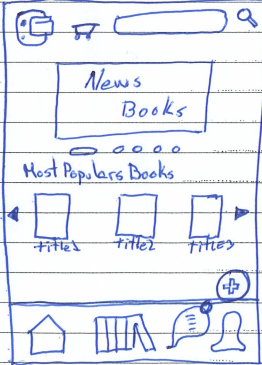 News
Books
Most Populars Books
title1 title2 title3